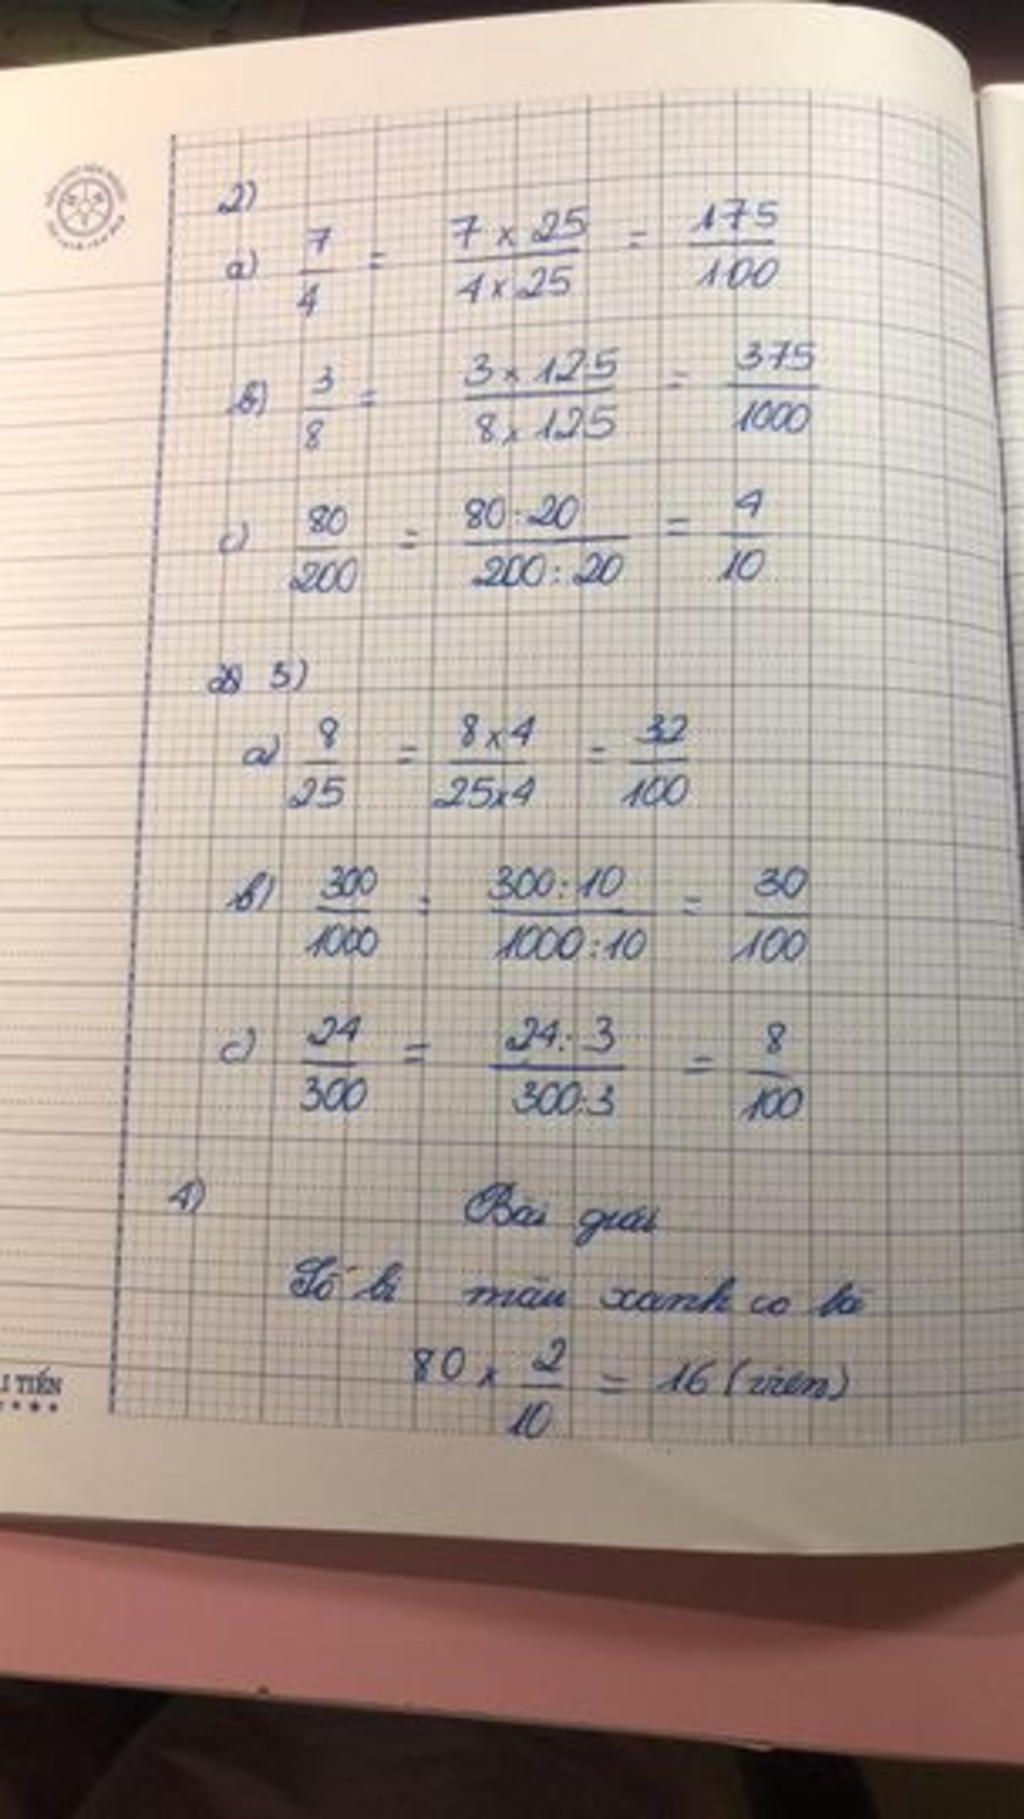 2)
a) 7/4 = 7 x 25 / 4 x 25 = 175/100
b) 3/8 = 3 x 125 / 8 x 125 = 375/1000
c) 80/200 = 80 : 20 / 200 : 20 = 4/10
3)
a) 8/25 = 8 x 4 / 25 x 4 = 32/100
b) 300/1000 = 300 : 10 / 1000 : 10 = 30/100
c) 24/300 = 24 : 3 / 300 : 3 = 8/100
4) Bài giải
Số bi màu xanh có là
80 x 2/10 = 16 (viên)
I TIẾN